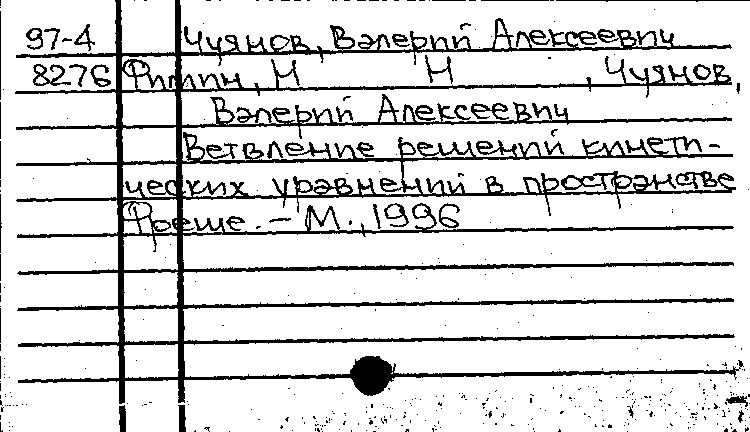 97-4 Чуянов, Валерий Алексеевич
8276 Фимин, Н Н , Чуянов,
Валерий Алексеевич
Ветвление решений кинети-
ческих уравнений в пространстве
Фреше. - М., 1996